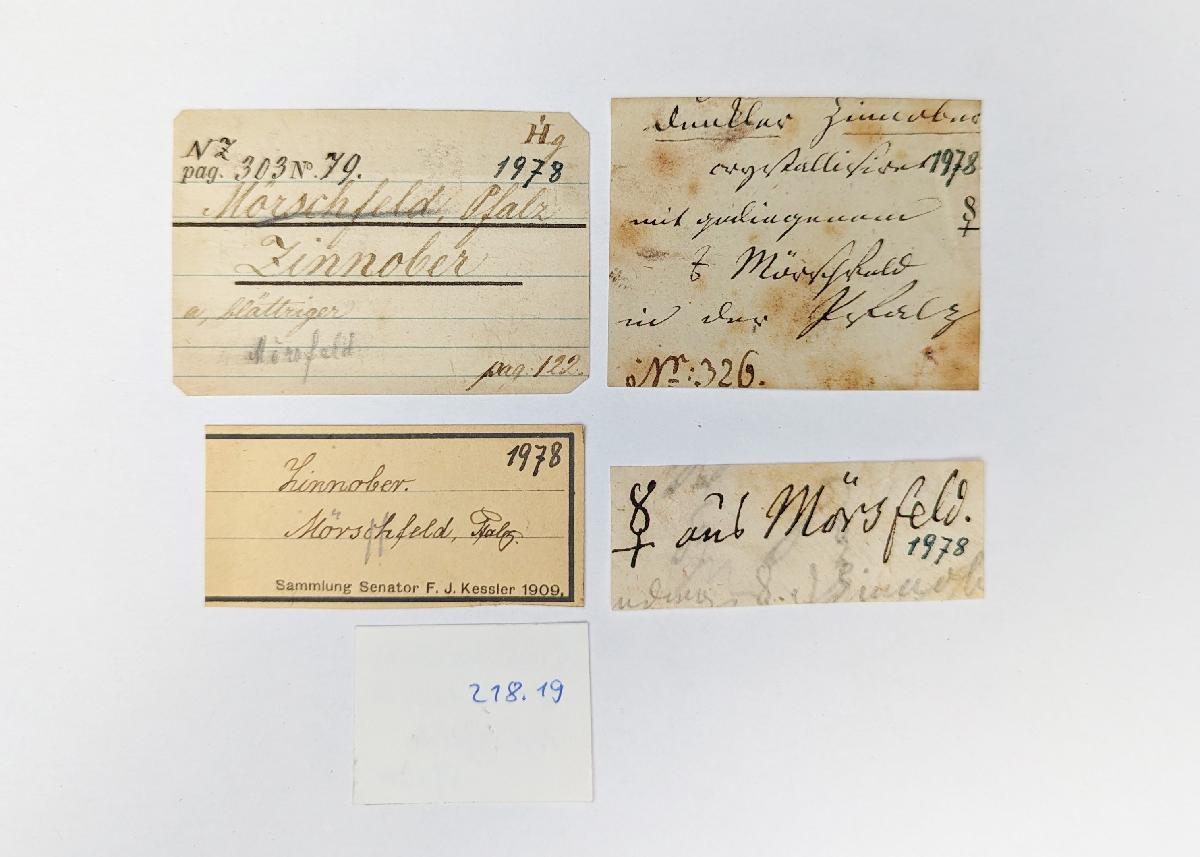 NZ Hg
pag. 303 No. 79. 1978
Mörschfeld, Pfalz
Zinnober
a, blättriger
Mörsfeld
pag. 122.
dunkler Zinnober
crystallisiret 1978
mit gediegenem ☿
Mörschfeld
in der Pfalz
Nr: 326.
1978
Zinnober.
Mörschfeld, Pfalz.
Sammlung Senator F. J. Kessler 1909.
☿ aus Mörsfeld.
1978
218.19